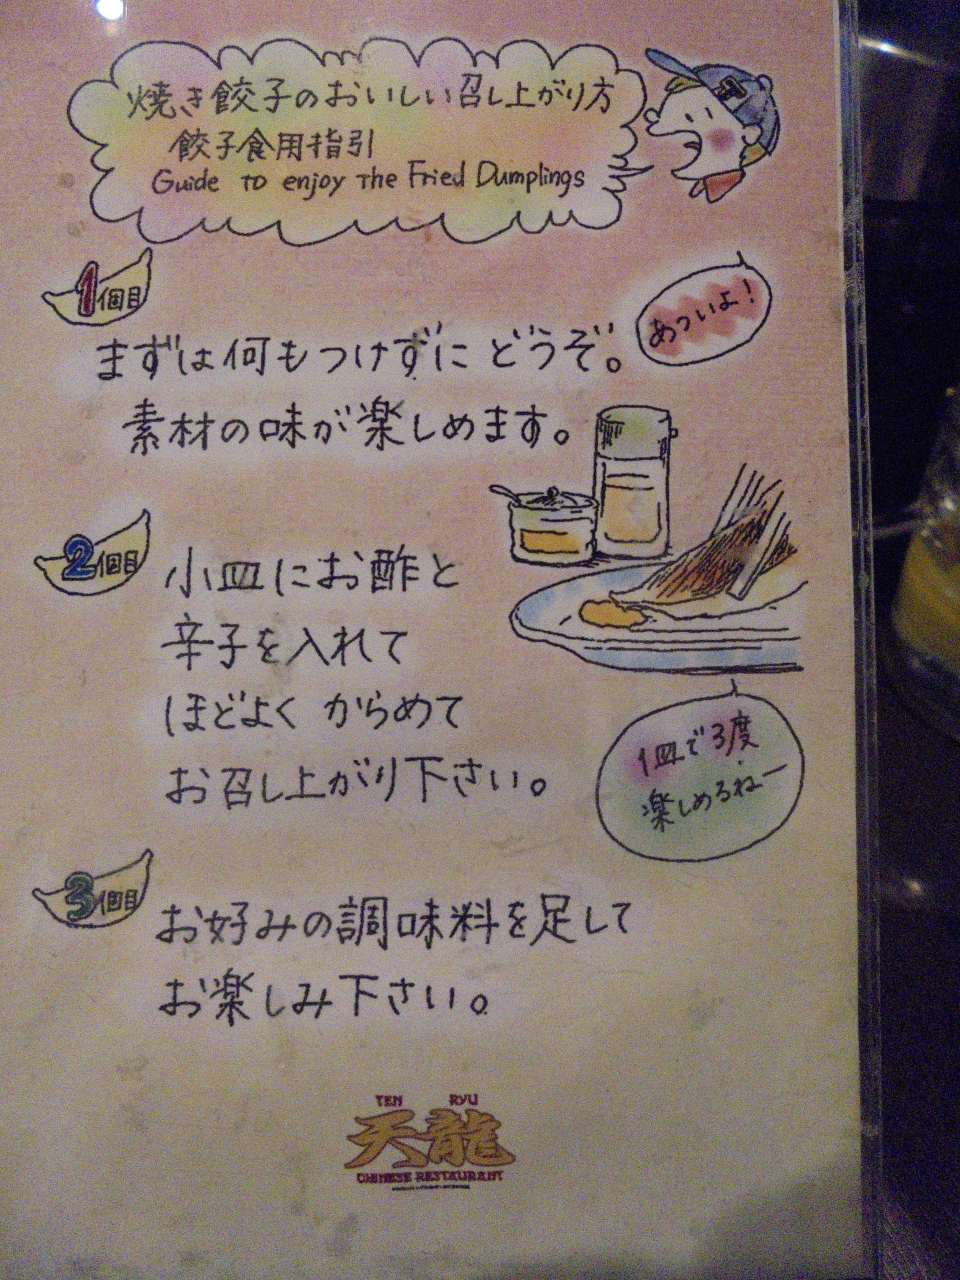 焼き餃子のおいしい召し上がり方
餃子食用指引
Guide To enjoy The Fried Dumplings
1個目
あついよ！
まずは何もつけずに どうぞ。
素材の味が楽しめます。
2個目
小皿にお酢と
辛子を入れて
ほどよく からめて
お召し上がり下さい。
1皿で3度
楽しめるねー
3個目
お好みの調味料を足して
お楽しみ下さい。
TEN RYU
天龍
CHINESE RESTAURANT